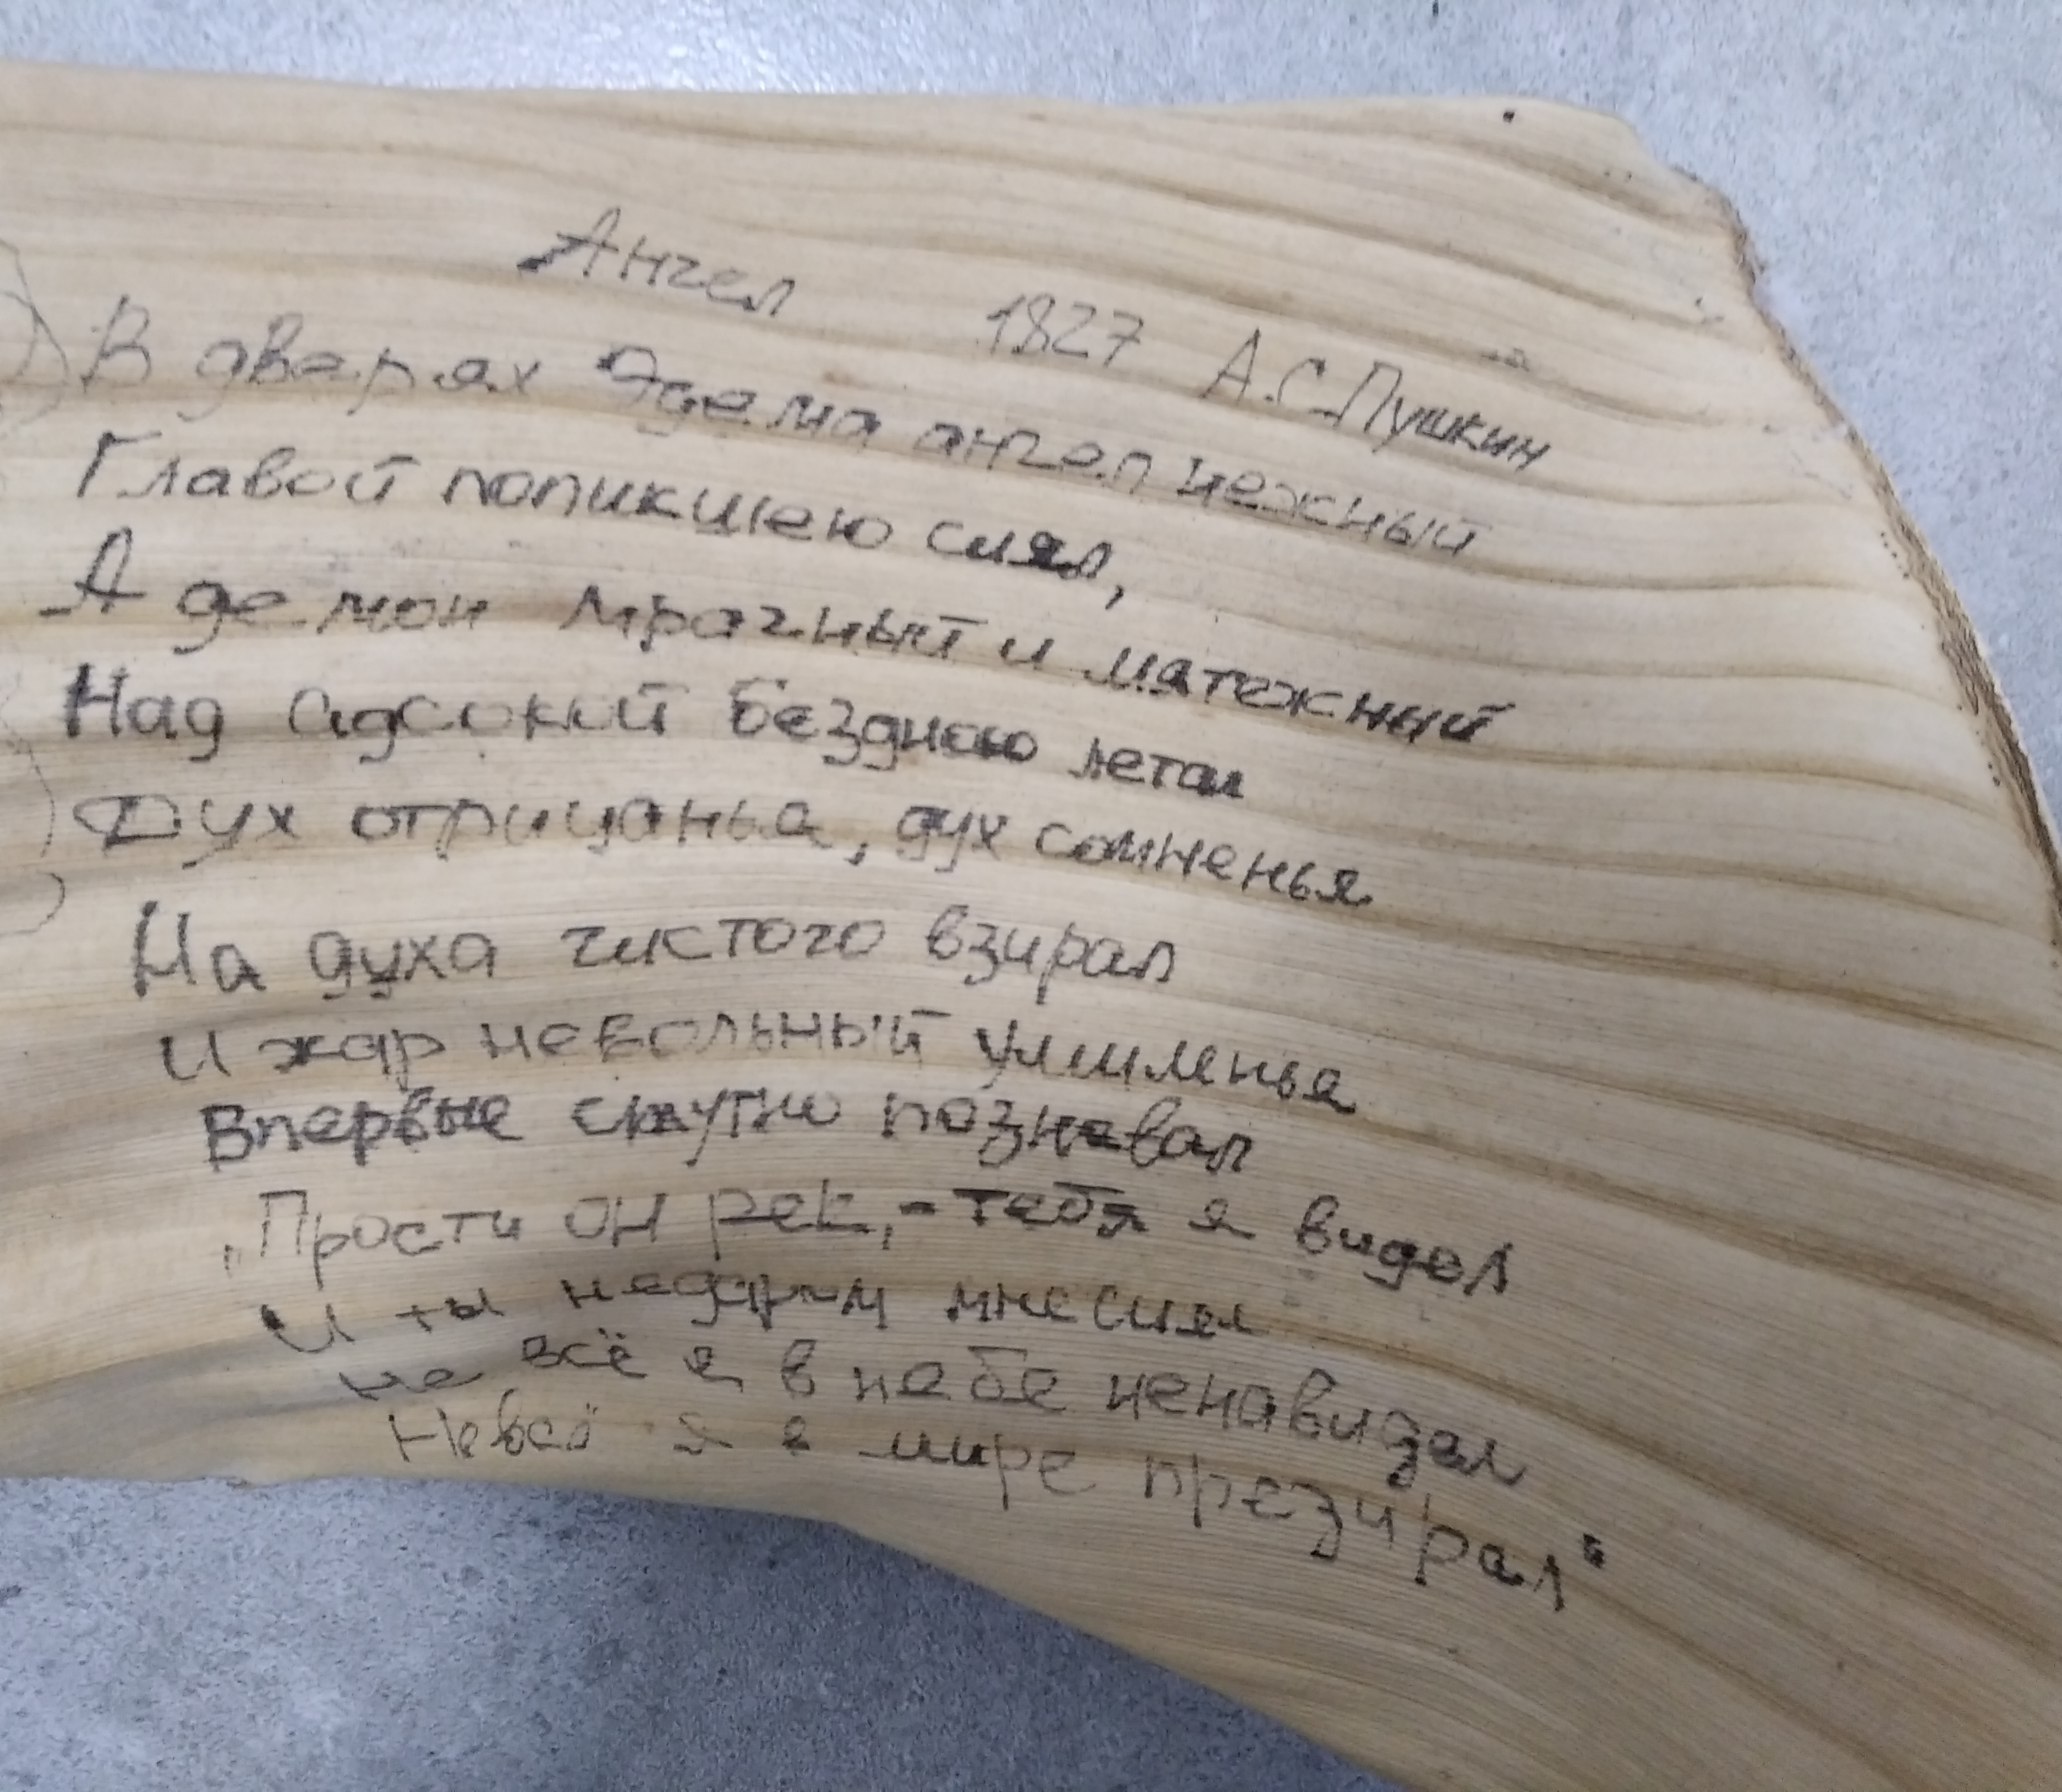 Ангел
1827 А.С.Пушкин
В дверях Эдема ангел нежный
Главой поникшею сиял,
А демон мрачный и мятежный
Над адской бездною летал
Дух отрицанья, дух сомненья
На духа чистого взирал
И жар невольный умиленья
Впервые смутно познавал
„Прости он рек,- тебя я видел
И ты недаром мне сиял
не всё я в небе ненавидел
Не всё я в мире презирал"